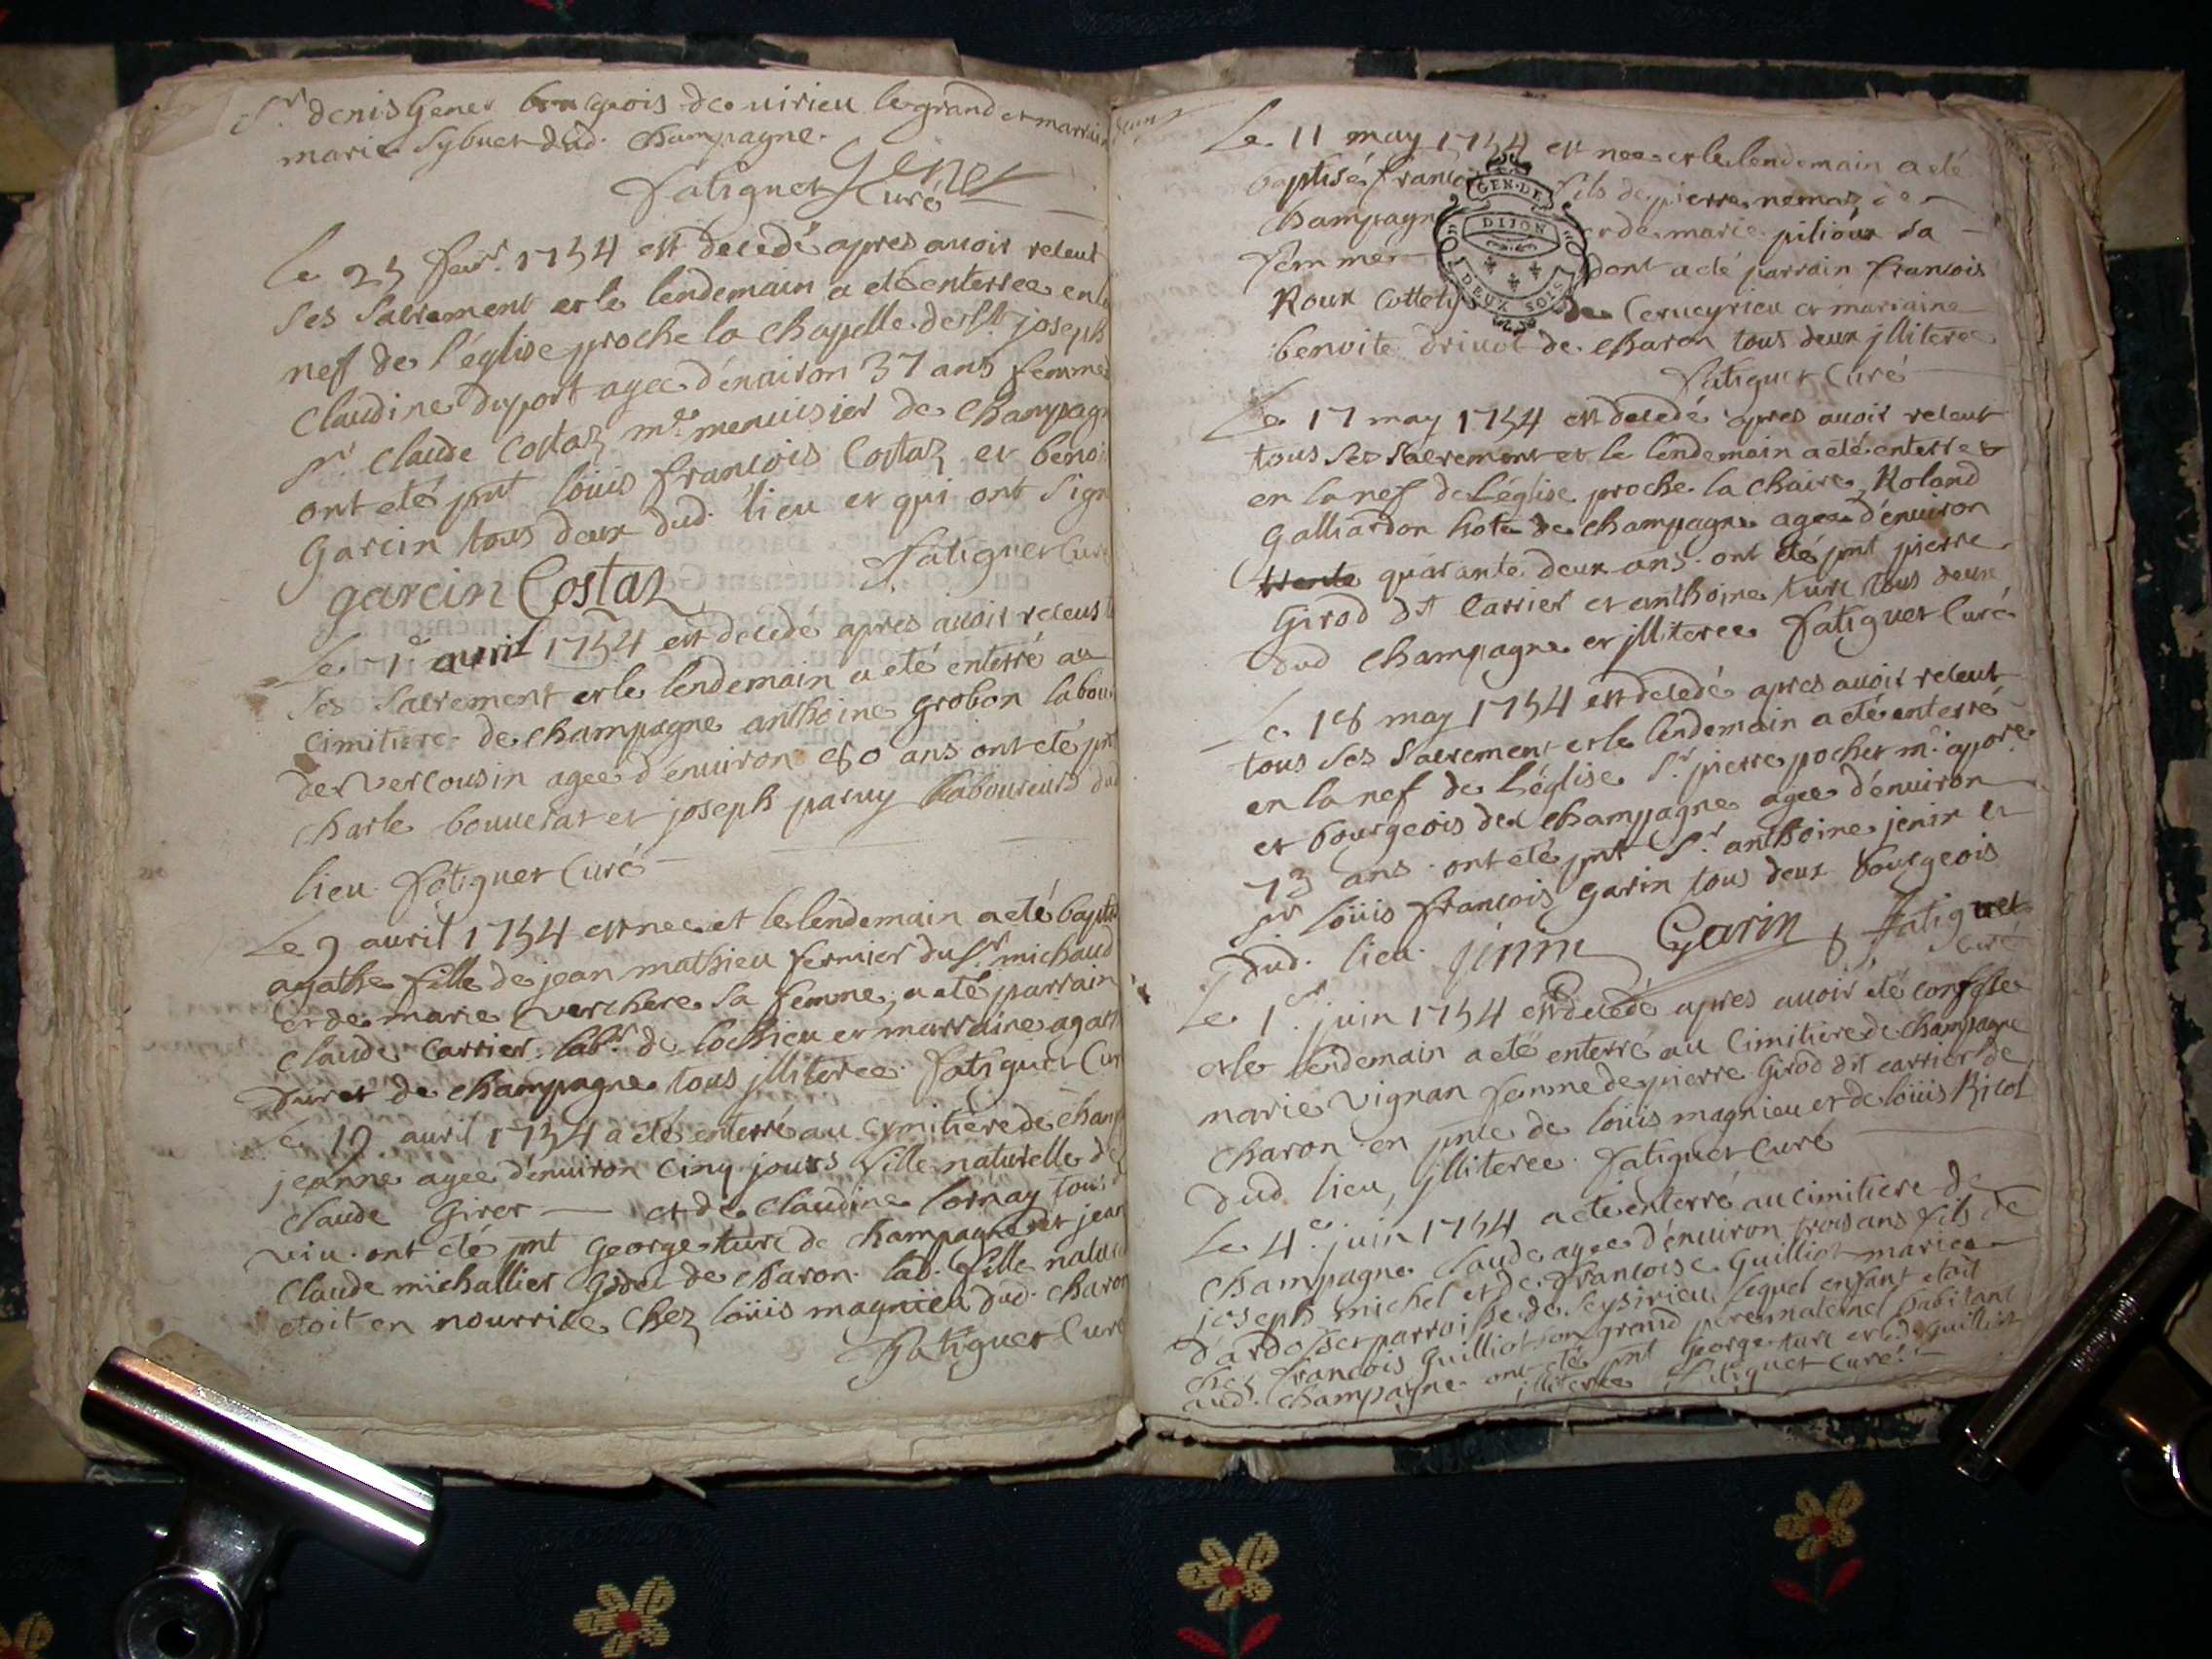 Sr. denis Gener bourgeois de virieu le grand et marrain
marie Sybuet dud. Champagne.
Gener
fatiguet Curé
le 25 feuvr. 1754 est decedé apres auoir receut
ses Sacrement et le lendemain a eté enterree en la
nef de l'église proche la chapelle de St joseph
Claudine duport agee d'enuiron 37 ans femme
Sr. Claude Costaz me. menuisier de Champagn
ont eté pnt louis francois Costaz et benoi
Garcin tous deux dud. lieu et qui ont Sign
garcin Costaz fatiguet Cure
Le 1e auril 1754 est decede apres auoir receus
ses Sacrement et le lendemain a eté enterré au
Cimitiere de champagne anthoine grobon labou
de Vercousin agee d'enuiron 80 ans ont eté pnt
Charle bouuerat et joseph paruy laboureurs dud
lieu fatiguet Curé
Le 9 auril 1754 est nee et le lendemain a eté bapti
agathe fille de jean mathieu fermier du Sr michaud
et de marie Verchere sa femme, a eté parrain
Claude Carrier labr. de lochieu et marraine agath
duret de champagne tous jlliteree fatiguet Cur
Le 19 auril 1754 a eté enterré au Cymitiere de Cham
jeanne agee d'enuiron cinq jours fille naturelle de
Claude Girer et de Claudine lornay tous
Viu ont eté pnt george turc de Champagne et jean
Claude michallier de Charon lab. fille nature
etoit en nourrice chez loüis magnieu dud. Charon
fatiguet Cure
Le 11 may 1754 est nee et le lendemain a eté
baptisé francoi fils de pierre nemoz de
Champagne et de marie pilioux sa
femme dont a eté parrain francois
GEN. DE
DIJON
DEUX SOLS
Roux de Cerueyrieu et mariaine
benoite driuot de charon tous deux jlliteree
fatiguet Curé
Le 17 may 1754 est decedé apres auoir receut
tous Ses Sacrement et le lendemain a eté enterre
en la nef de L'église proche la chaire Roland
Galliardon hote de champagne agee d'enuiron
trente quarante deux ans. ont eté pnt pierre
Girod dt Carrier et anthoine turc tous deux
dud Champagne et jlliteree fatiguet Curé
Le 18 may 1754 est decedé apres auoir receut
tous ses Sacrement et le lendemain a eté enterré
en la nef de L'église Sr. pierre pochet me. apore.
et bourgeois de Champagne agee d'enuiron
73 ans. ont eté pnt Sr. anthoine jenin et
Sr loüis francois Garin tous deux bourgeois
dud. lieu. jenin Garin fatiguet
Curé
Le 1er. juin 1754 est decedé apres auoir eté confessee
et le lendemain a eté enterré au Cimitiere de Champagne
marie Vignan femme de pierre Girod dit carrier de
Charon en pnce de loüis magnieu et de loüis Ricol
dud. lieu, jlliteree. fatiguet Curé
Le 4e. juin 1754 a eté enterré au cimitiere de
Champagne Claude agee d'enuiron trois ans fils de
joseph michel et de francoise Guilliot mariee
d'ardosset parroisse de Ceysirieu lequel enfant etoit
chez francois Guilliot son grand pere maternel habitant
aud. champagne ont eté pnt George turc et led. Guilliot
jlliteree fatiguet Curé.